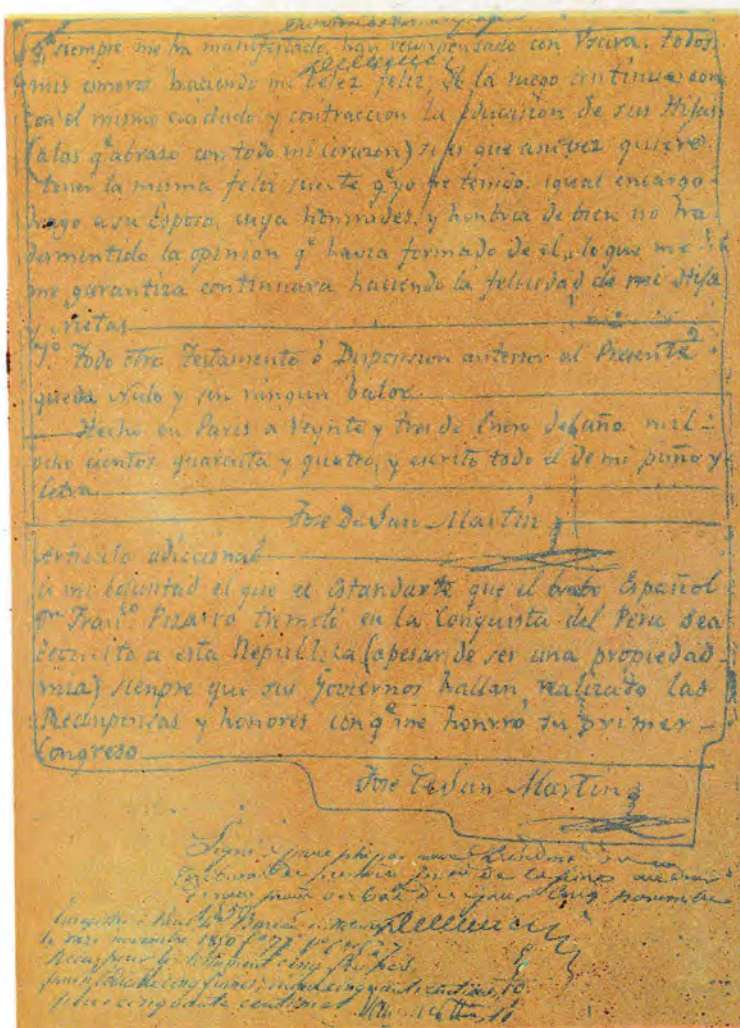 qᵉ siempre me ha manifestado, han recompensado con Vsura, todos
mis esmeros haciendo mi bejez feliz; Yo la ruego continue con
con el mismo cuidado y contraccion la educacion de sus Hijas
(a las qᵉ abrazo con todo mi corazon) si es que a su vez quiere
tener la misma feliz suerte qᵉ yo he tenido. igual encargo
hago a su Esposo, cuya honrades, y hombria de bien no ha
desmentido la opinion qᵉ havia formado de el, lo que me
me garantiza continuara haciendo la felicidad de mi Hija
y nietas
7º Todo otro Testamento ó Disposicion anterior al Presente
queda Nulo y sin ningun balor
Hecho en Paris a Veynte y tres de Enero del año mil
ocho cientos quarenta y quatro, y escrito todo el de mi puño y
letra
José de San Martin
Articulo adiccional
es mi boluntad el que el Estandarte que el brabo Español
Dn Franco Pizarro tremoló en la Conquista del Perú sea
debuelto a esta Republica (apesar de ser una propiedad
mia) sienpre que sus Goviernos hallan realizado las
Recompensas y honores con qᵉ me honrró su primer
Congreso
José de San Martin
Signé paraphé par nous Président
premiere
procès verbal de ce jour cinq novembre
Enregistré à Paris le
le onze novembre 1850 fº 77
Reçu pour le testament cinq francs
cinquante centimes 10
plus cinquante centimes